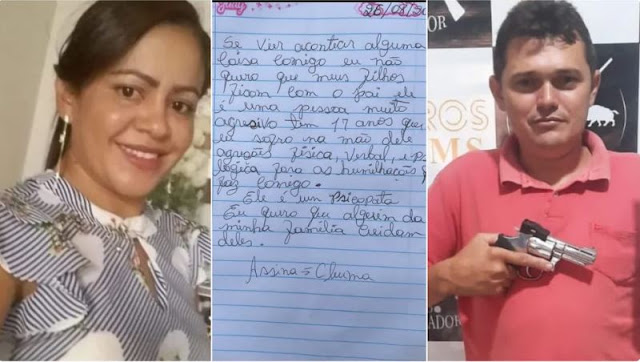 25/03/20
Se vier acontecer alguma
coisa comigo eu não
quero que meus filhos
ficam com o pai ele
é uma pessoa muito
agressivo tem 17 anos que
eu sofro na mão dele
agreções física, verbal, e
lógica fora as humilhações
faz comigo.
Ele é um Psicopata
Eu quero que alguém da
minha família cuidam
deles.
Assina
ROS
MS
ADOR